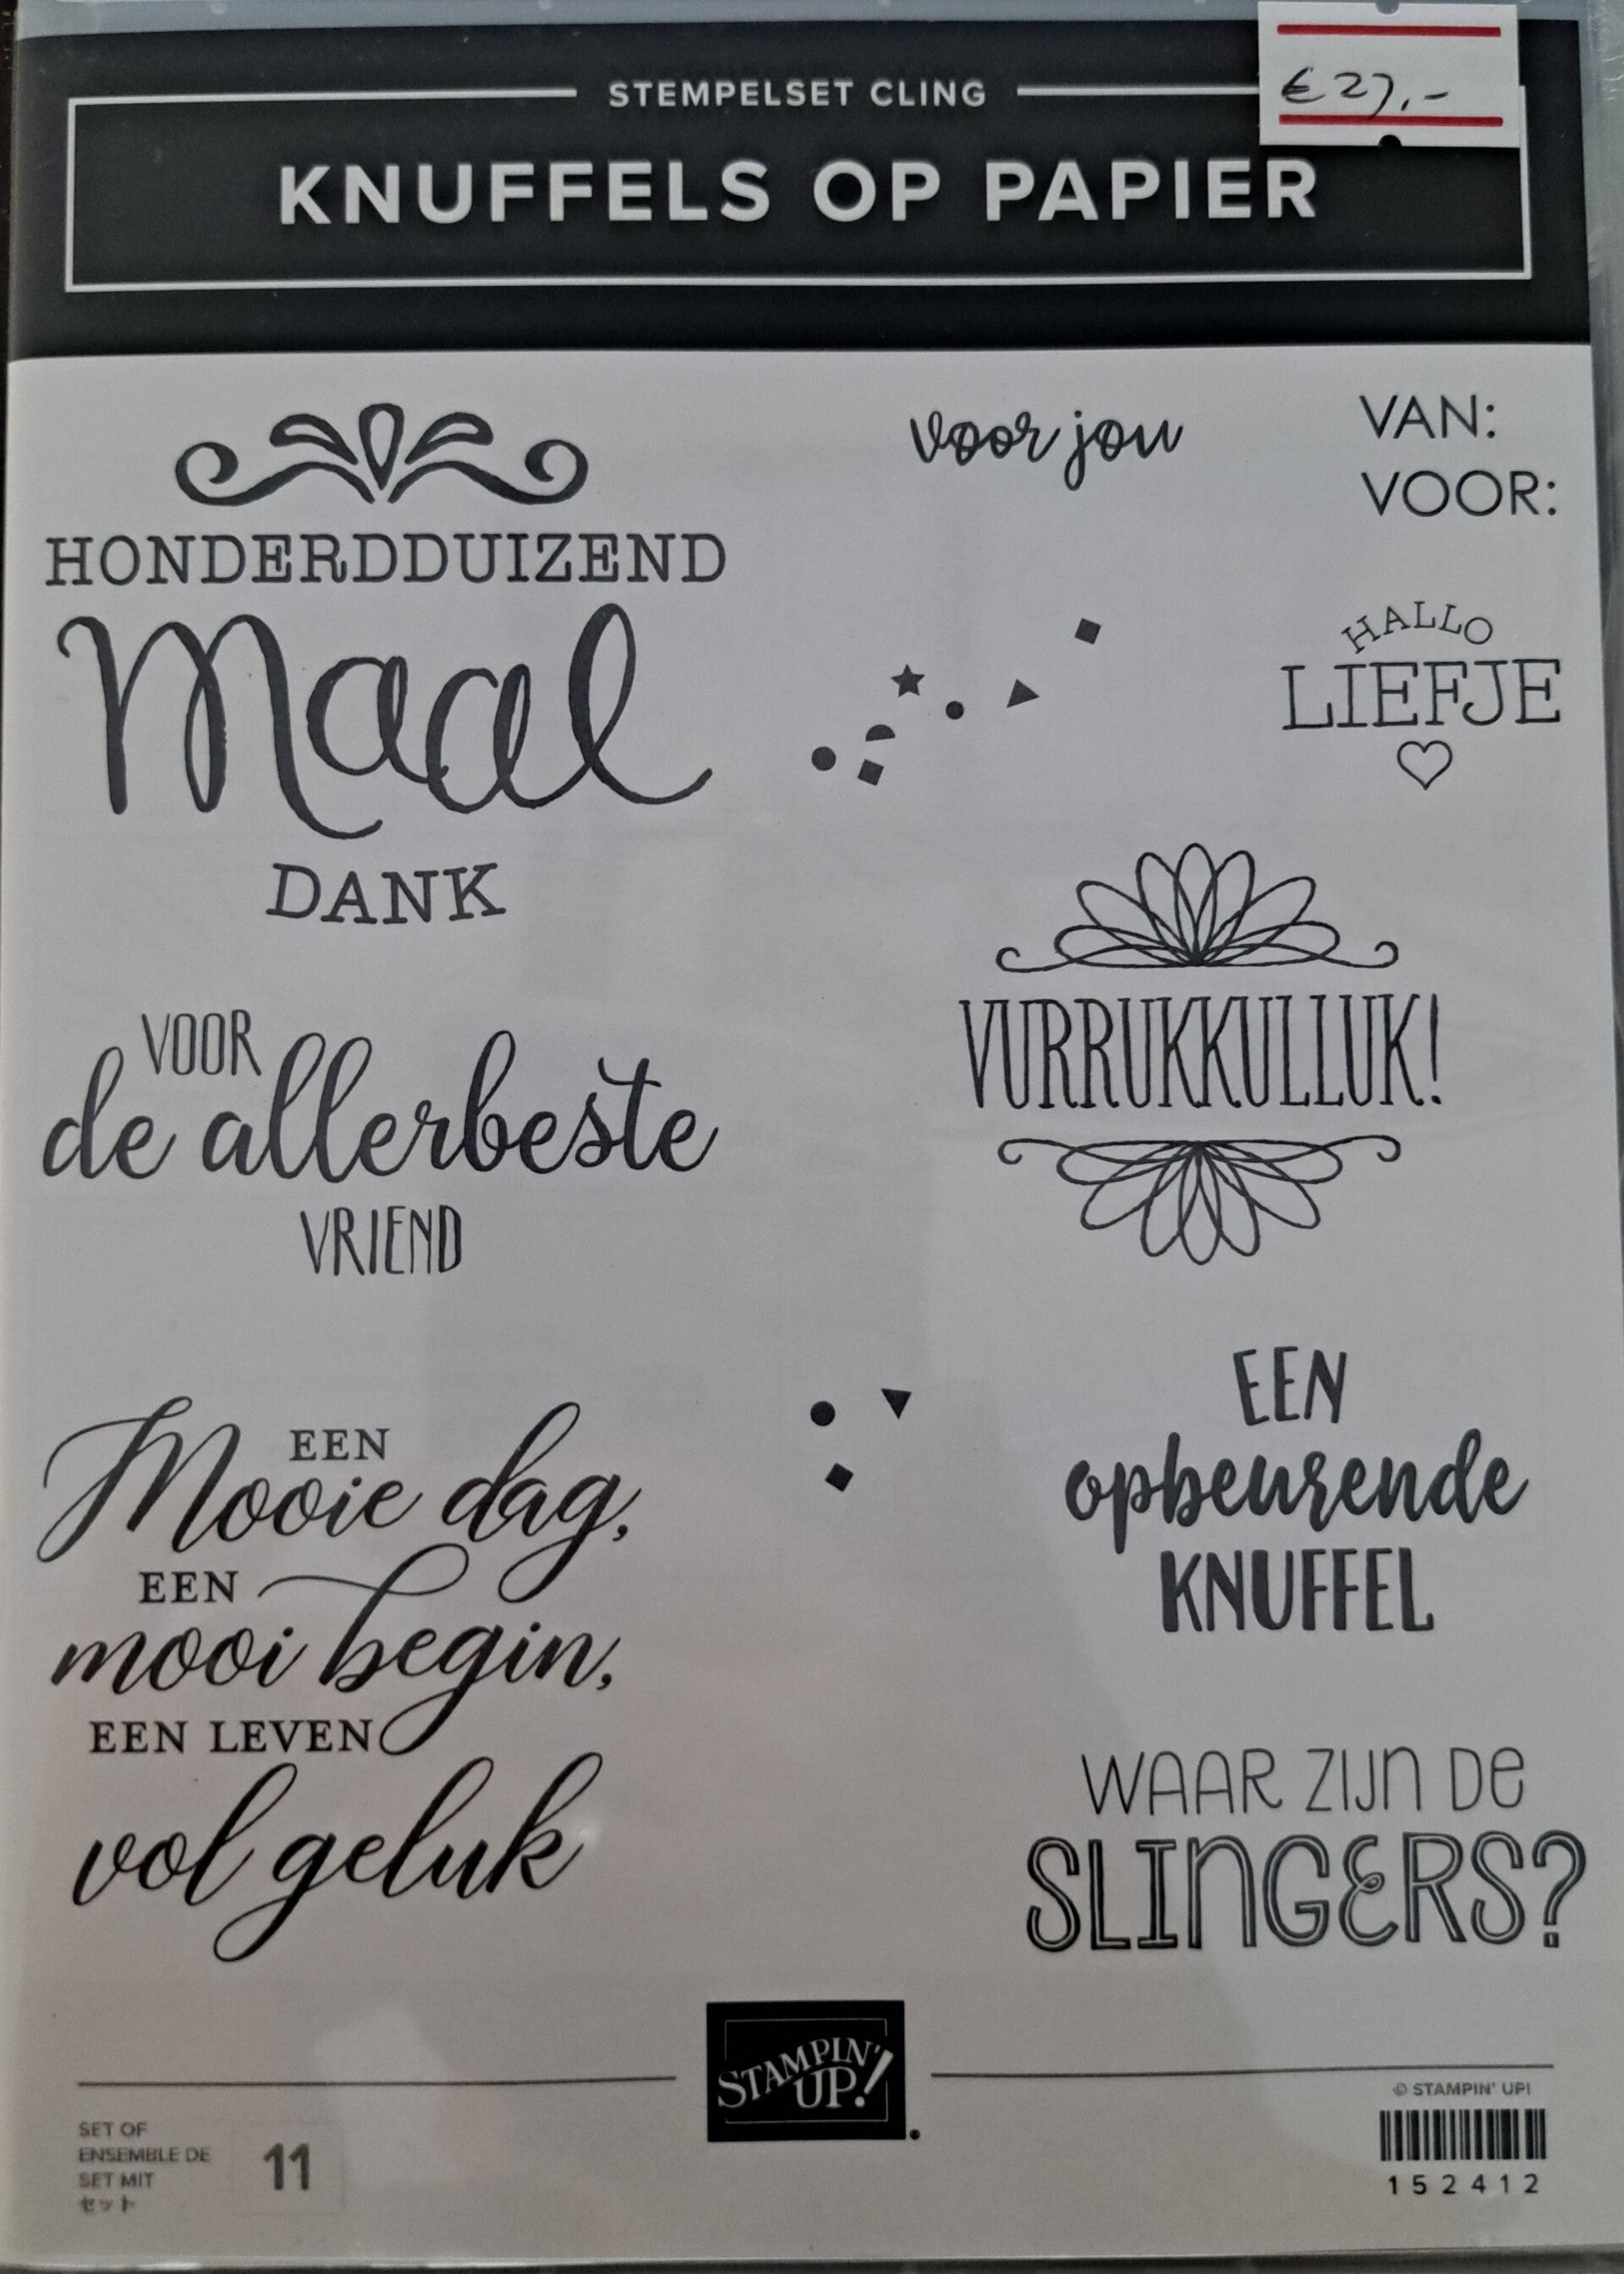 STEMPELSET CLING
€27,-
KNUFFELS OP PAPIER
HONDERDDUIZEND
Maal
DANK
voor jou
VAN:
VOOR:
HALLO
LIEFJE
VOOR
de allerbeste
VRIEND
VURRUKKULLUK!
EEN
Mooie dag,
EEN
mooi begin,
EEN LEVEN
vol geluk
EEN
opbeurende
KNUFFEL
WAAR ZIJN DE
SLINGERS?
STAMPIN'
UP!
SET OF
ENSEMBLE DE
SET MIT
セット
11
© STAMPIN' UP!
152412